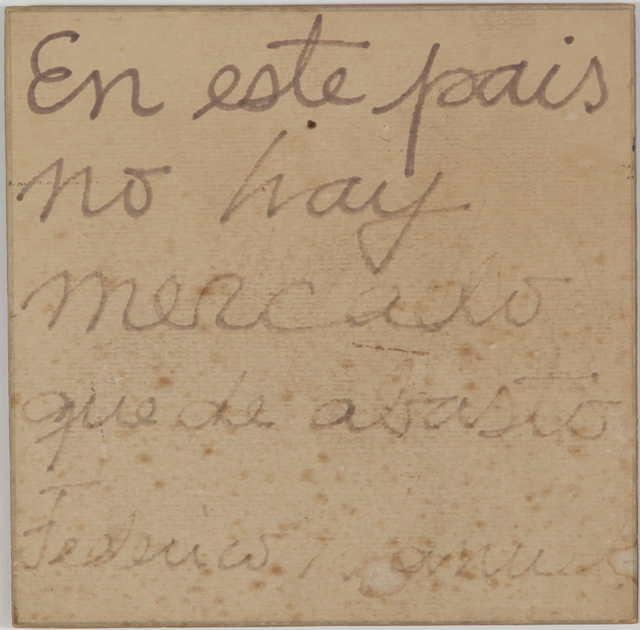 En este pais
no hay
mercado
que de abasto
Federico